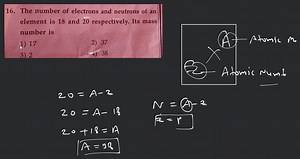 16. The number of electrons and neutrons of an
element is 18 and 20 respectively. Its mass
number is
1) 17 2) 37
3) 2 4) 38
A Atomic
Z Atomic Numb
20 = A-2
20 = A-18
20+18 = A
A = 38
N = A-z